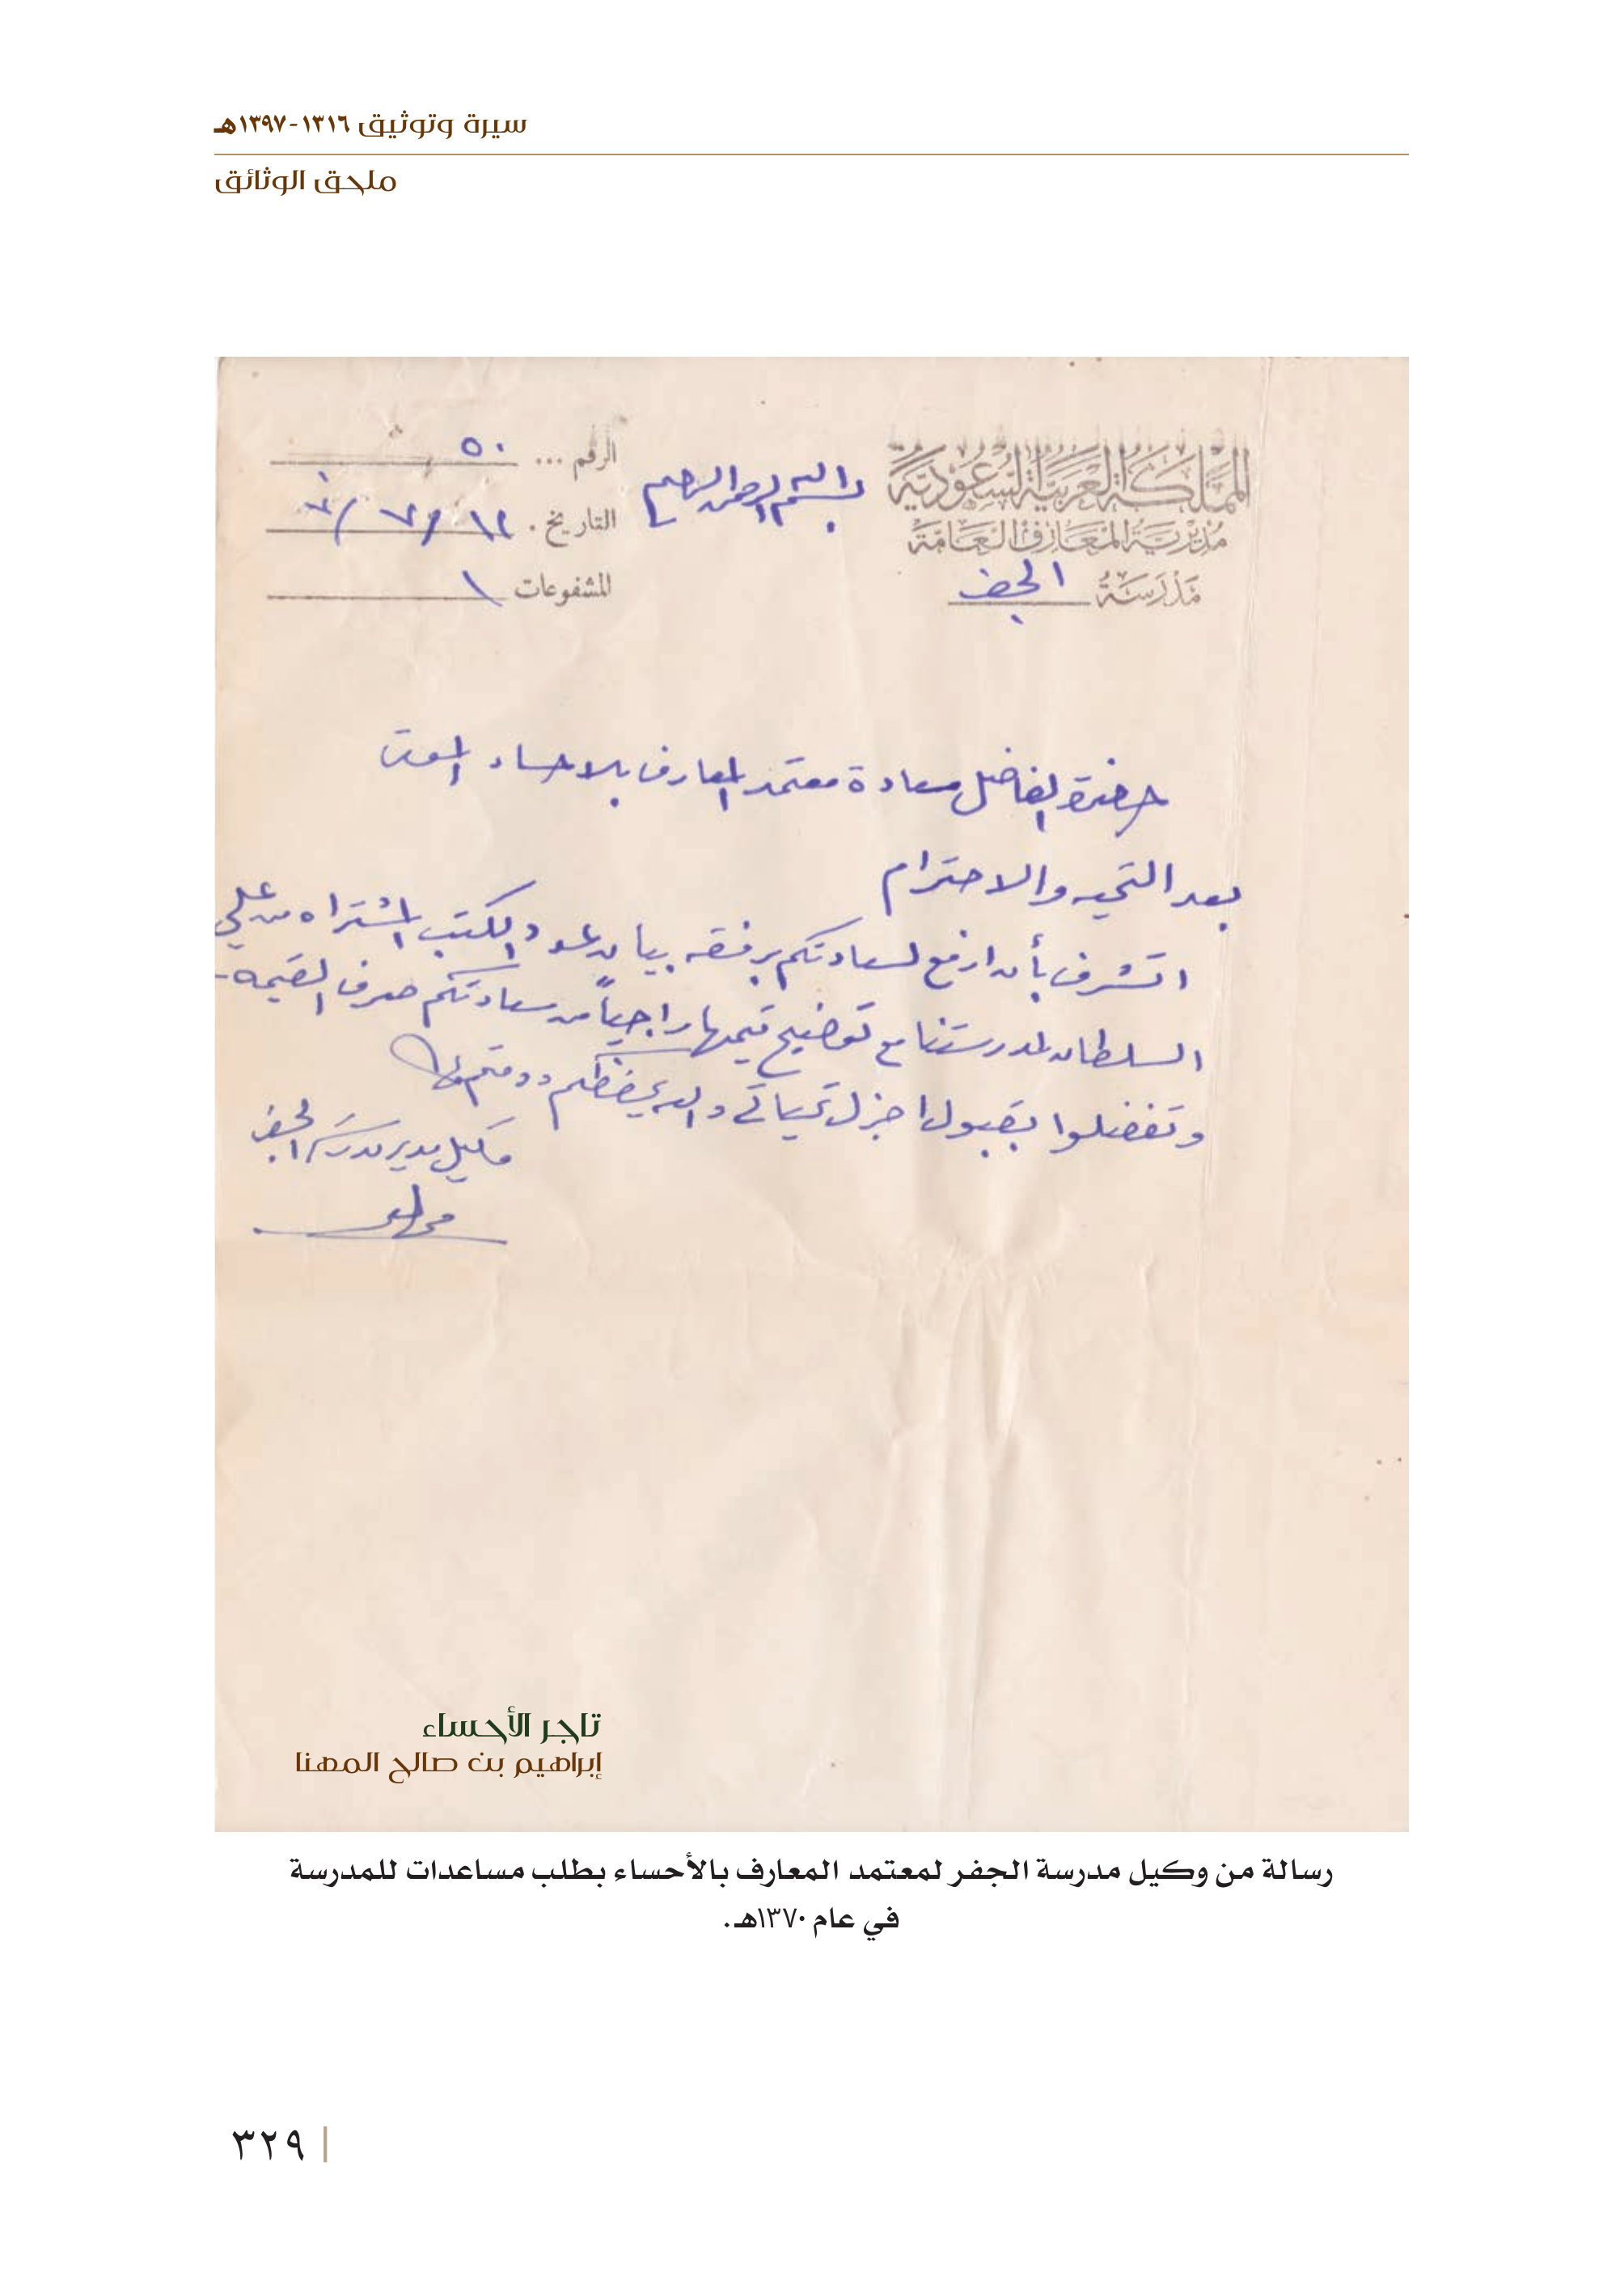 سيرة وتوثيق ١٣١٦-١٣٩٧هـ
ملحق الوثائق
المملكة العربية السعودية
مديرية المعارف العامة
مدرسة الجفر
بسم الله الرحمن الرحيم
الرقم ... ٥٠
التاريخ . ١٢ / ٧ / ٧٠
المشفوعات ١
حضرة الفاضل سعادة معتمد المعارف بالاحساء
بعد التحيه والاحترام
اتشرف بأن ارفع لسعادتكم برفقه بيان الكتب المشتراه من علي
السلطان لمدرستنا مع توضيح قيمها راجياً من سعادتكم صرف القيمه -
وتفضلوا بقبول اجزل تحياتي والله يحفظكم ودمتم
وكيل مدير مدرسة الجفر
تاجر الأحساء
إبراهيم بن صالح المهنا
رسالة من وكيل مدرسة الجفر لمعتمد المعارف بالأحساء بطلب مساعدات للمدرسة
في عام ١٣٧٠هـ.
٣٢٩